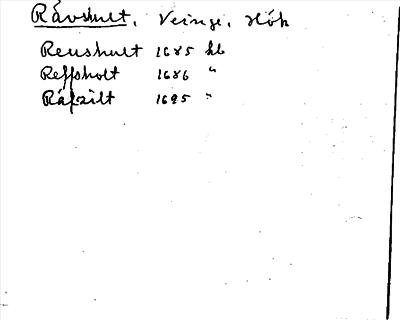 Rävshult, Veinge, Hök
Reushult 1685 kb
Reffsholt 1686 "
Räfzilt 1695 "